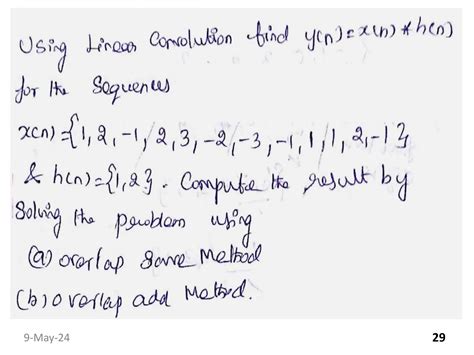 Using Linear Convolution find y(n) = x(n) * h(n)
for the Sequences
x(n) = {1, 2, -1, 2, 3, -2, -3, -1, 1, 1, 2, -1}
& h(n) = {1, 2}. Compute the result by
Solving the problem using
(a) overlap Save Method
(b) overlap add Method.
9-May-24
29